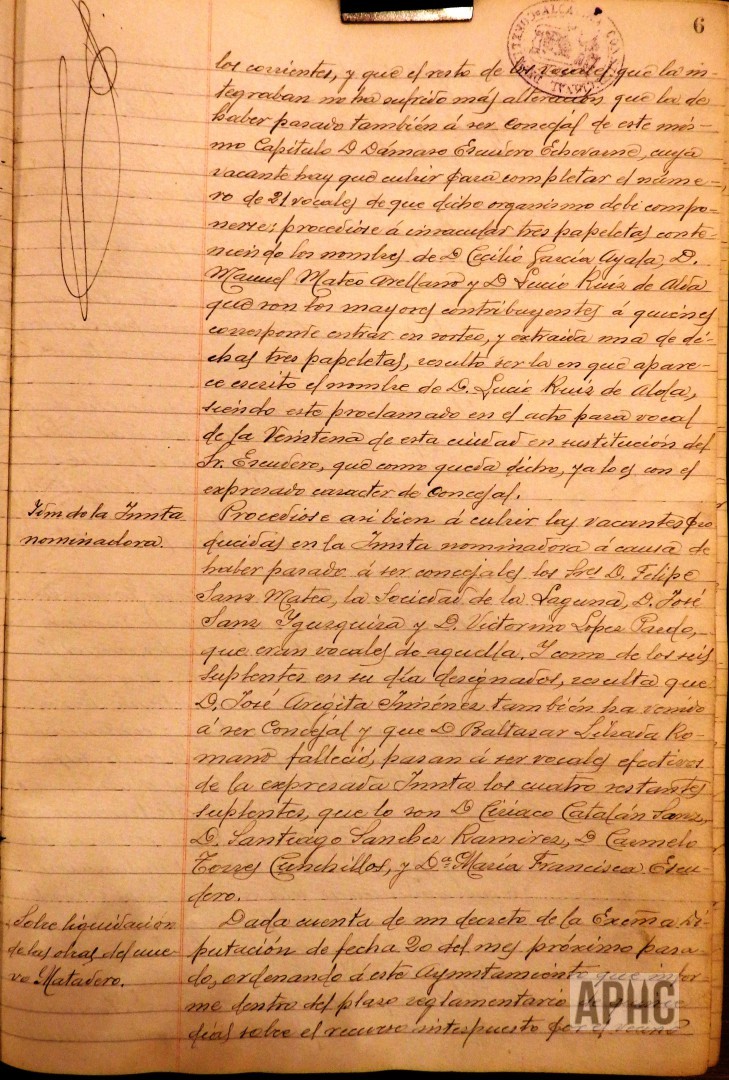 6
los corrientes, y que el resto de los vocales que la in-
tegraban no ha sufrido más alteración que la de
haber pasado también á ser Concejal de este mis-
mo Capitulo D. Dámaso Escudero Echevarne, cuya
vacante hay que cubrir para completar el núme-
ro de 21 vocales de que dicho organismo debe compo-
nerse; procedióse á insacular tres papeletas conte-
niendo los nombres de D. Cecilio García Ayala, D.
Manuel Mateo Arellano y D. Lucio Ruiz de Alda
que son los mayores contribuyentes á quienes
corresponde entrar en sorteo, y extraida una de di-
chas tres papeletas, resultó ser la en que apare-
ce escrito el nombre de D. Lucio Ruiz de Alda,
siendo este proclamado en el acto para vocal
de la Veintena de esta ciudad en sustitución del
Sr. Escudero, que como queda dicho, ya lo es con el
expresado caracter de Concejal.
Idm de la Junta
nominadora.
Procedióse asi bien á cubrir las vacantes pro
ducidas en la Junta nominadora á causa de
haber pasado á ser concejales los Sres D. Felipe
Sanz Mateo, la Sociedad de la Laguna, D. José
Sanz Yguzquiza y D. Victorino López Pardo,
que eran vocales de aquella. Y como de los seis
suplentes en su día designados, resulta que
D. José Aregita Jiménez también ha venido
á ser Concejal y que D. Baltasar Lizada Ro-
mano falleció, pasan á ser vocales efectivos
de la expresada Junta los cuatro restantes
suplentes, que lo son D. Ciriaco Catalán Sanz,
D. Santiago Sanchez Ramirez, D. Carmelo
Torres Cunchillos, y Dª María Francisca Escu-
dero.
Sobre liquidación
de las obras del nue-
vo Matadero.
Dada cuenta de un decreto de la Excma Di-
putación de fecha 20 del mes próximo pasa-
do, ordenando á este Ayuntamiento que infor-
me dentro del plazo reglamentario de
días sobre el recurso interpuesto por el
APHC